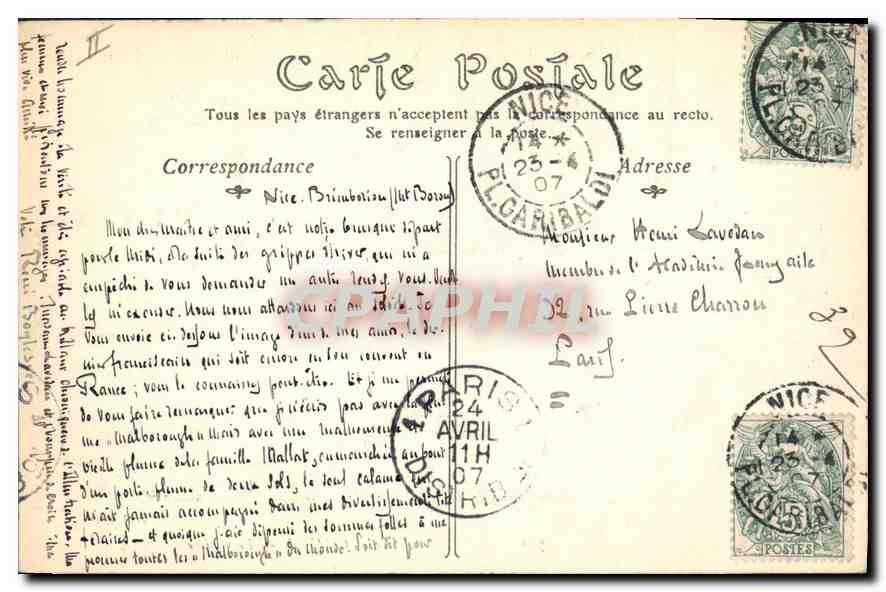 II
Carte Postale
Tous les pays étrangers n'acceptent pas la correspondance au recto.
Se renseigner à la poste.
Correspondance
Adresse
Nice. Brimborion (Mt Boron)
Mon cher maître et ami, c'est notre brusque départ
pour le Midi, à la suite des grippes d'hiver, qui m'a
empêché de vous demander un autre rendez vous. Veuillez
m'excuser. Nous nous attardons ici au soleil. Je
vous envoie ci-dessous l'image d'un de mes amis, le dernier
franciscain qui soit encore en son couvent en
France ; vous le connaissez peut-être. Et je me permets
de vous faire remarquer que je n'écris pas avec la plume
"Malborough" mais avec une malheureuse et
vieille plume de la famille Mallat, emmanchée au bout
d'un porte plume de deux sols, le seul calame qui
m'ait jamais accompagné dans mes divertissements littéraires
– et quoique j'aie dépensé des sommes folles à me
procurer toutes les "Malborough" du monde! Soit dit pour
rendre hommage à la vérité
Votre René Boylesve
Monsieur Henri Lavedan
membre de l'Académie française
32, rue Pierre Charron
Paris
32
NICE
14 *
23 - 4
07
PL. GARIBALDI
PARIS
24
AVRIL
11 H
07
DISTRIB
NICE
14
23
PL. GARIBALDI
POSTES
NICE
14
23
7
PL. GARIBALDI
POSTES
CPAPHIL